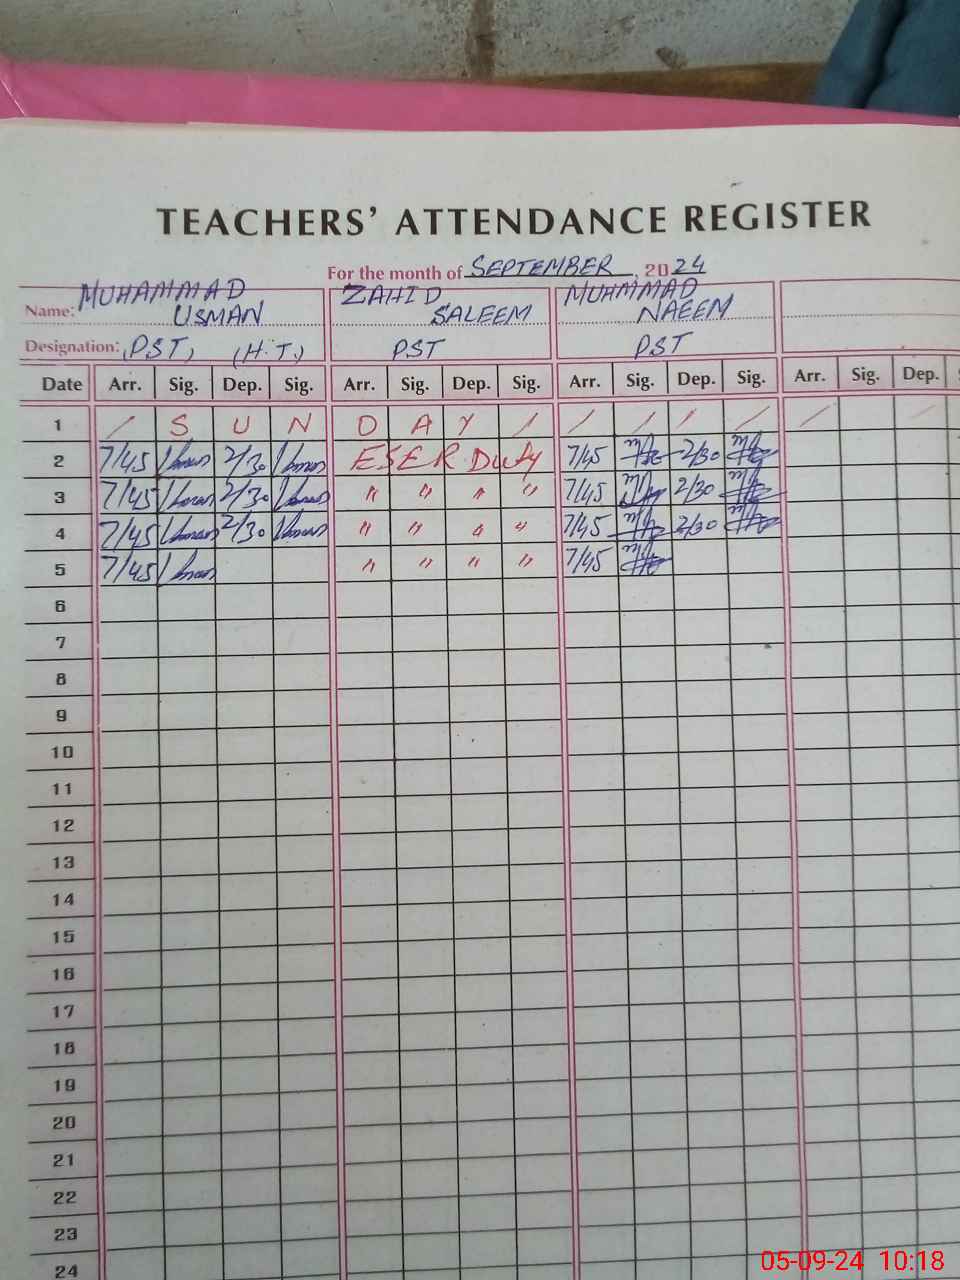 TEACHERS' ATTENDANCE REGISTER
For the month of SEPTEMBER, 2024
Name: MUHAMMAD USMAN ZAHID SALEEM MUHMMAD NAEEM
Designation: PST, (H.T.) PST PST
Date Arr. Sig. Dep. Sig. Arr. Sig. Dep. Sig. Arr. Sig. Dep. Sig. Arr. Sig. Dep.
1 / S U N D A Y / / / / / / /
2 7/45 2/30 ESER Duty 7/45 2/30
3 7/45 2/30 " " " " 7/45 2/30
4 7/45 2/30 " " " " 7/45 2/30
5 7/45 " " " " 7/45
6
7
8
9
10
11
12
13
14
15
16
17
18
19
20
21
22
23
24
05-09-24 10:18